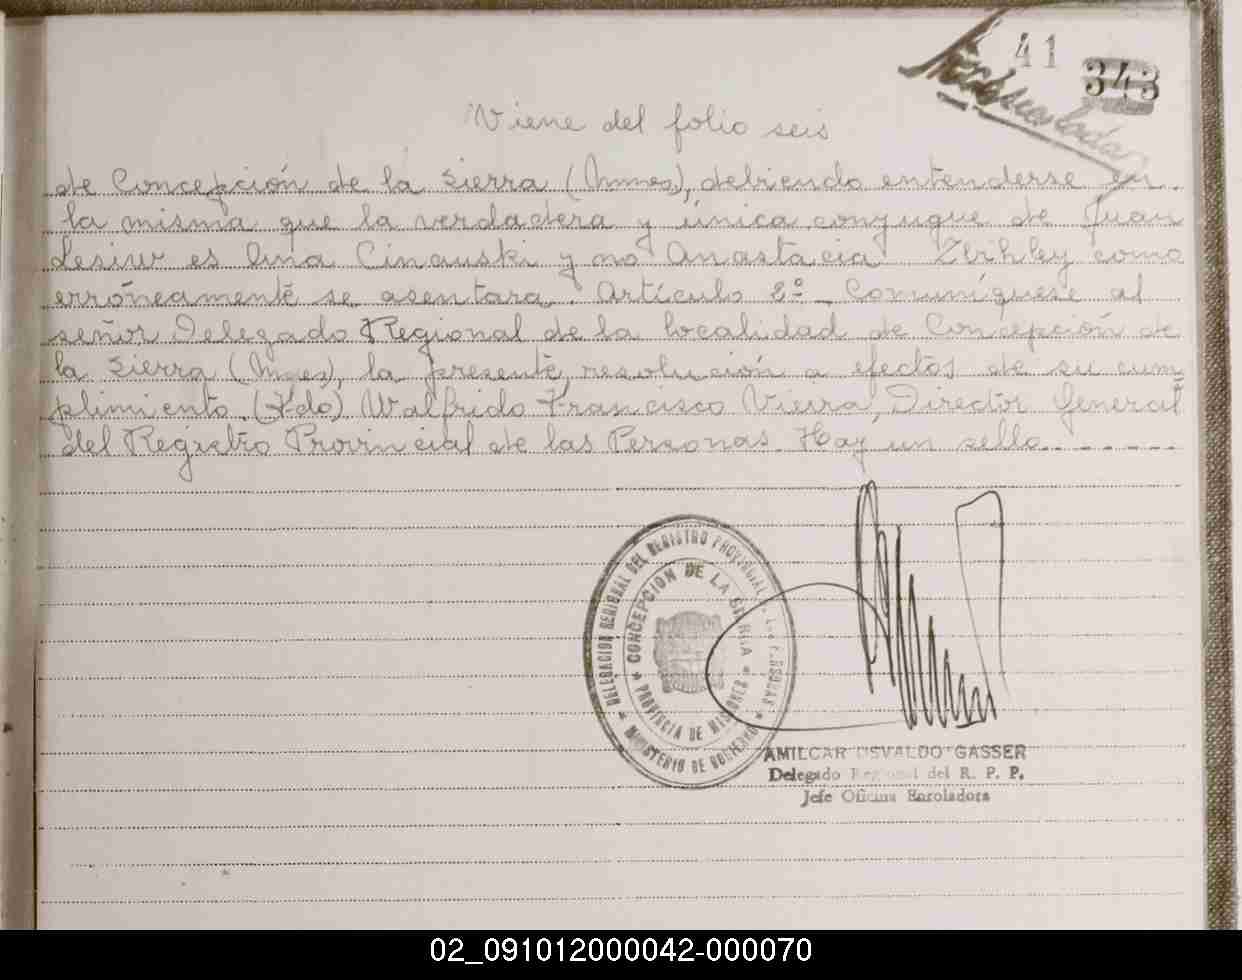 41 343
Inmaculada
Viene del folio seis
de Concepción de la Sierra (Mnes), debiendo entenderse en
la misma que la verdadera y única conyugue de Juan
Lesiw es Ana Cinauski y no Anastacia como
erróneamente se asentara. Artículo 2º_ Comuníquese al
señor Delegado Regional de la localidad de Concepción de
la Sierra (Mnes), la presente resolución a efectos de su cum
plimiento. (Fdo) Walfrido Francisco Vieira, Director General
del Registro Provincial de las Personas. Hay un sello.------
DELEGACION REGIONAL DEL REGISTRO PROVINCIAL DE LAS PERSONAS
* MINISTERIO DE GOBIERNO *
* CONCEPCION DE LA SIERRA *
PROVINCIA DE MISIONES
AMILCAR OSVALDO GASSER
Delegado Regional del R. P. P.
Jefe Oficina Enroladora
02_091012000042-000070